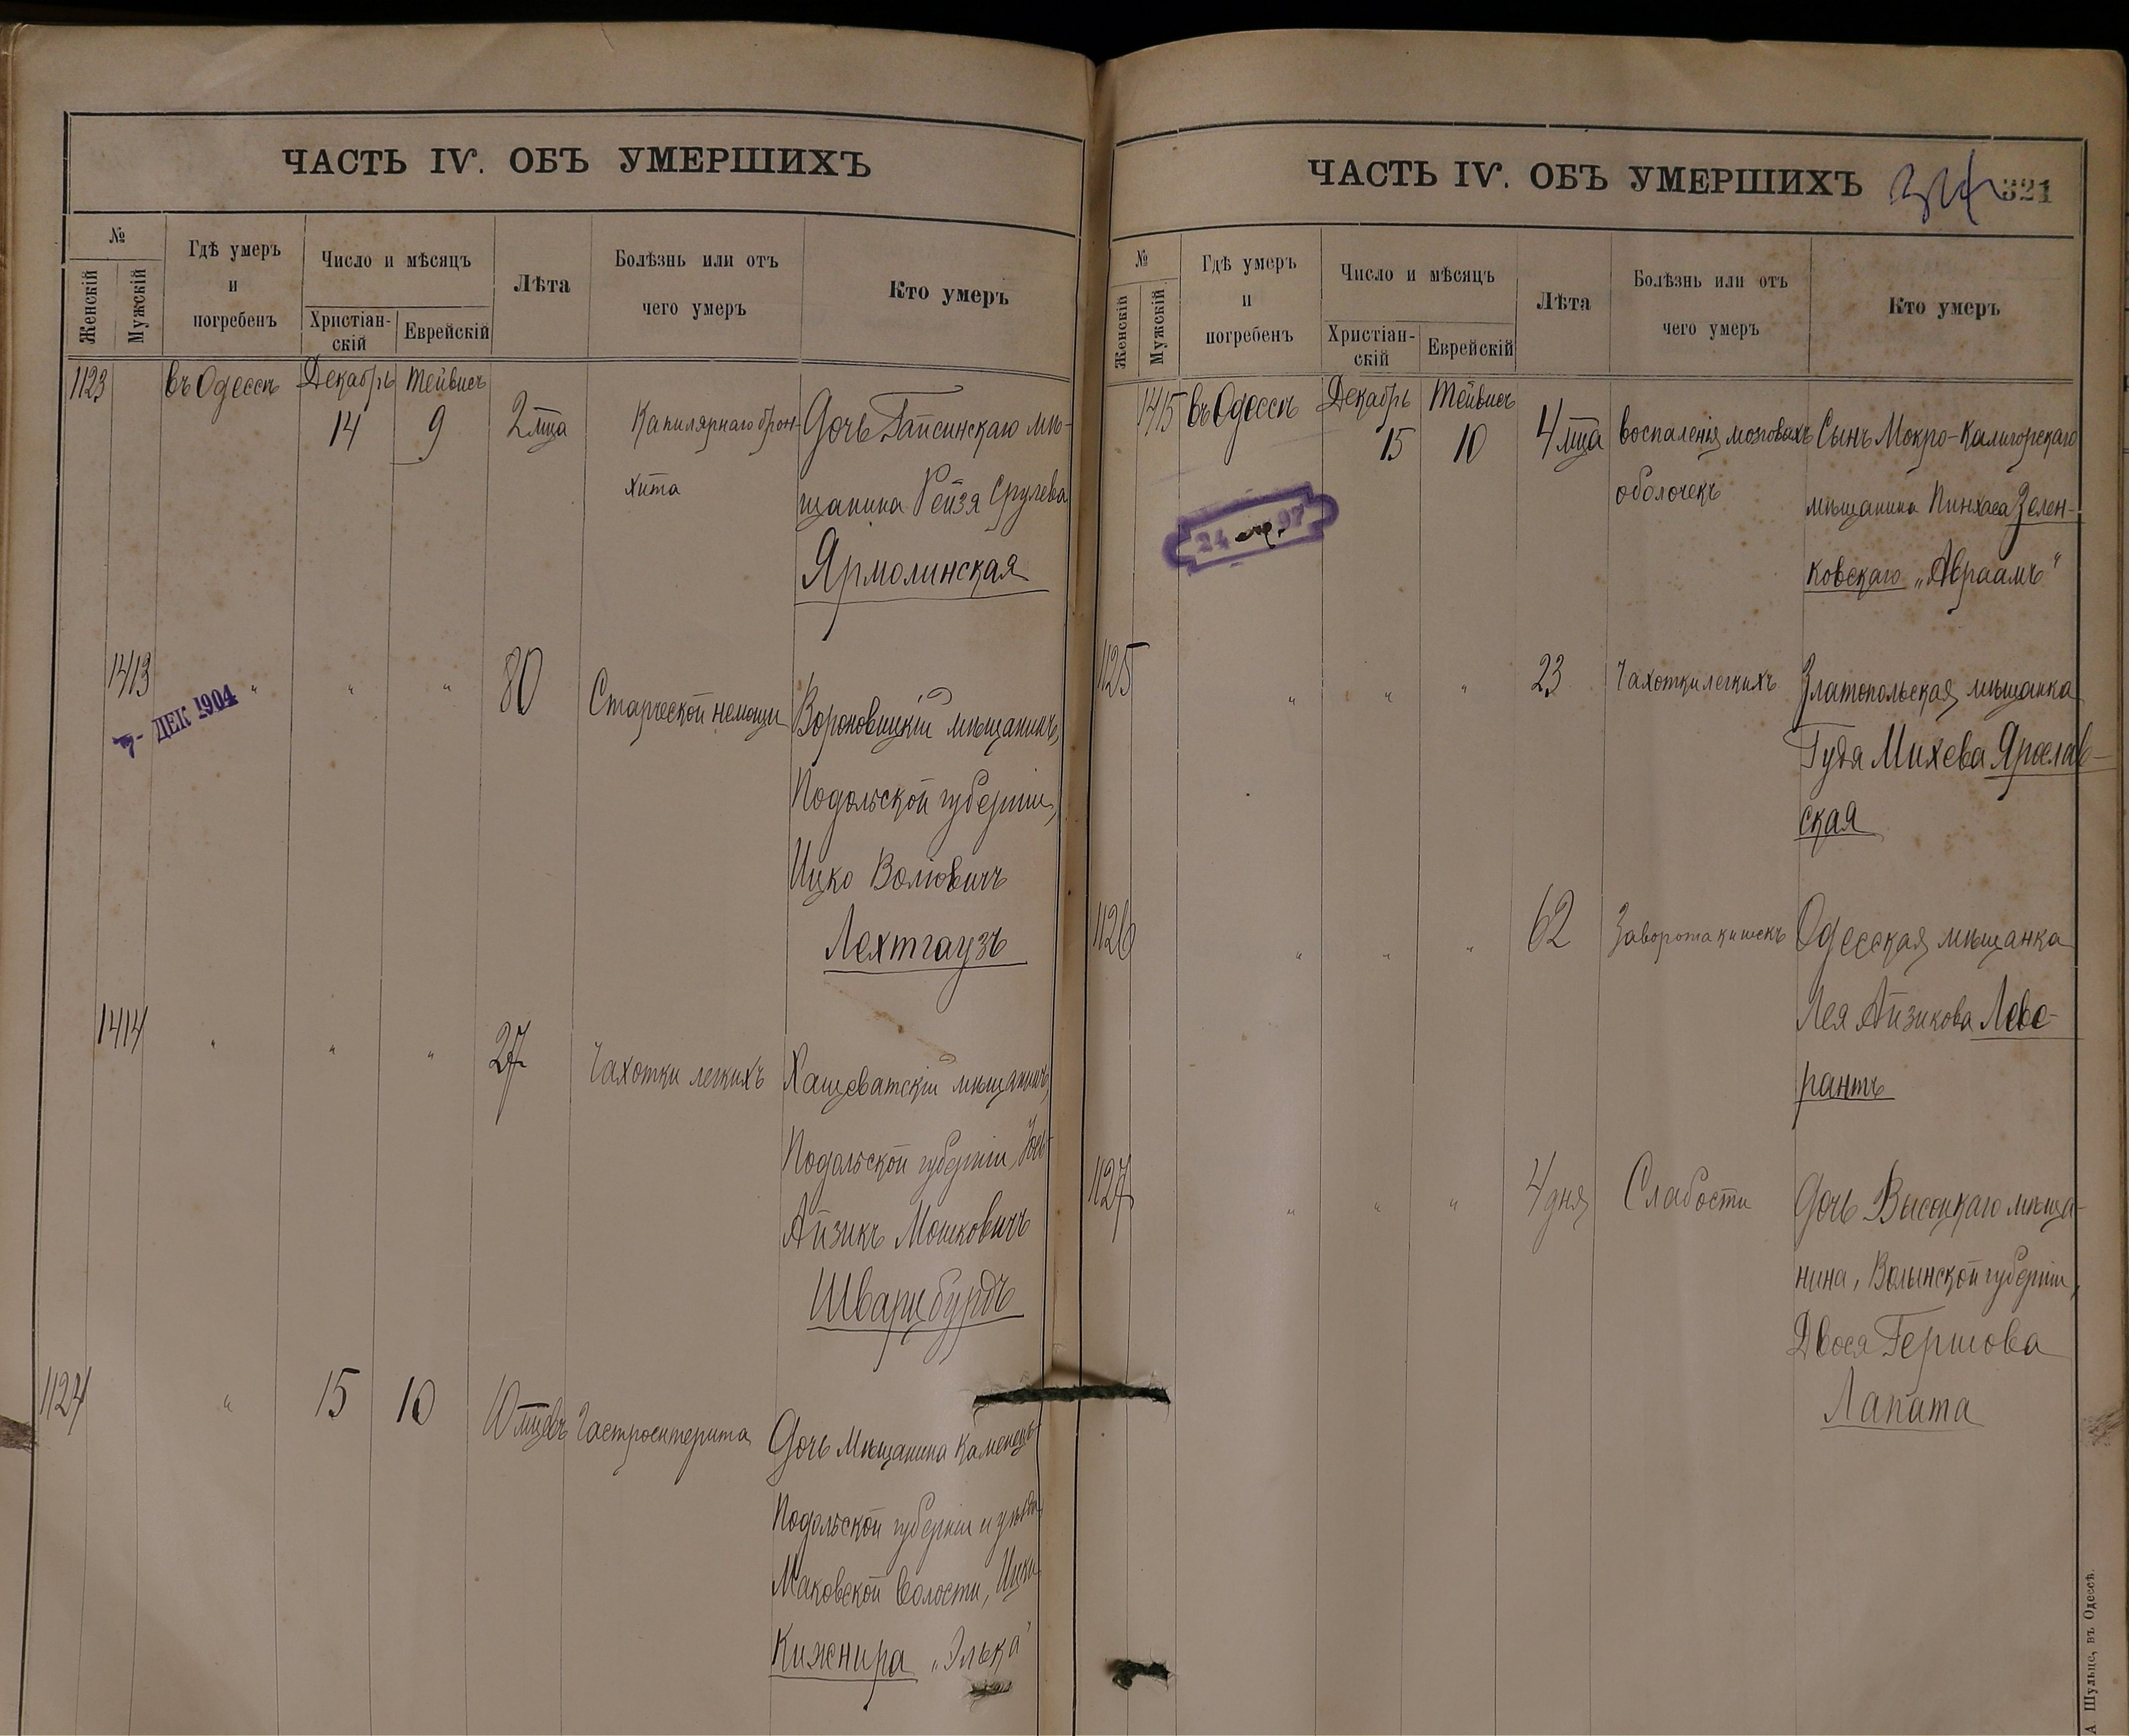 ЧАСТЬ IV. ОБЪ УМЕРШИХЪ
№
Женскій
Мужскій
Гдѣ умеръ
и
погребенъ
Число и мѣсяцъ
Христіан-
скій
Еврейскій
Лѣта
Болѣзнь или отъ
чего умеръ
Кто умеръ
1123 въ Одессѣ Декабрь Тейвисъ
14 9 2 мца Капилярнаго брон- Дочь Гайсинскаго мѣ-
хита щанина Рейзя Срулева
Ярмолинская
1413 " " " 80 Старческой немощи Вороновицкій мѣщанинъ,
7- ДЕК 1904
Подольской губерніи,
Ицко Волковичъ
Лехтгаузъ
1414 " " " 27 Чахотки легкихъ Хащеватскій мѣщанинъ,
Подольской губерніи,
Айзикъ Мошковичъ
Шварцбурдъ
1124 " 15 10 10 мцевъ Гастроентерита Дочь Мѣщанина Каменецъ-
Подольской губерніи и уѣзда
Маковской волости, Ицки
Кижнира „Элька"
ЧАСТЬ IV. ОБЪ УМЕРШИХЪ
321
№
Женскій
Мужскій
Гдѣ умеръ
и
погребенъ
Число и мѣсяцъ
Христіан-
скій
Еврейскій
Лѣта
Болѣзнь или отъ
чего умеръ
Кто умеръ
1415 въ Одессѣ Декабрь Тейвисъ
15 10 4 мца воспаленія мозговыхъ Сынъ Мокро-Калигорскаго
оболочекъ мѣщанина Пинхаса Зелен-
24 97
ковскаго „Авраамъ"
1125 " " " 23 Чахотки легкихъ Златопольская мѣщанка
Гудя Михева Ярослав-
ская
1126 " " " 62 Заворота кишекъ Одесская мѣщанка
Лея Айзикова Лебе-
рантъ
1127 " " " 4 дня Слабости Дочь Высоцкаго мѣща-
нина, Волынской губерніи,
Двося Гершова
Лапата
А Шульце, въ Одессѣ.